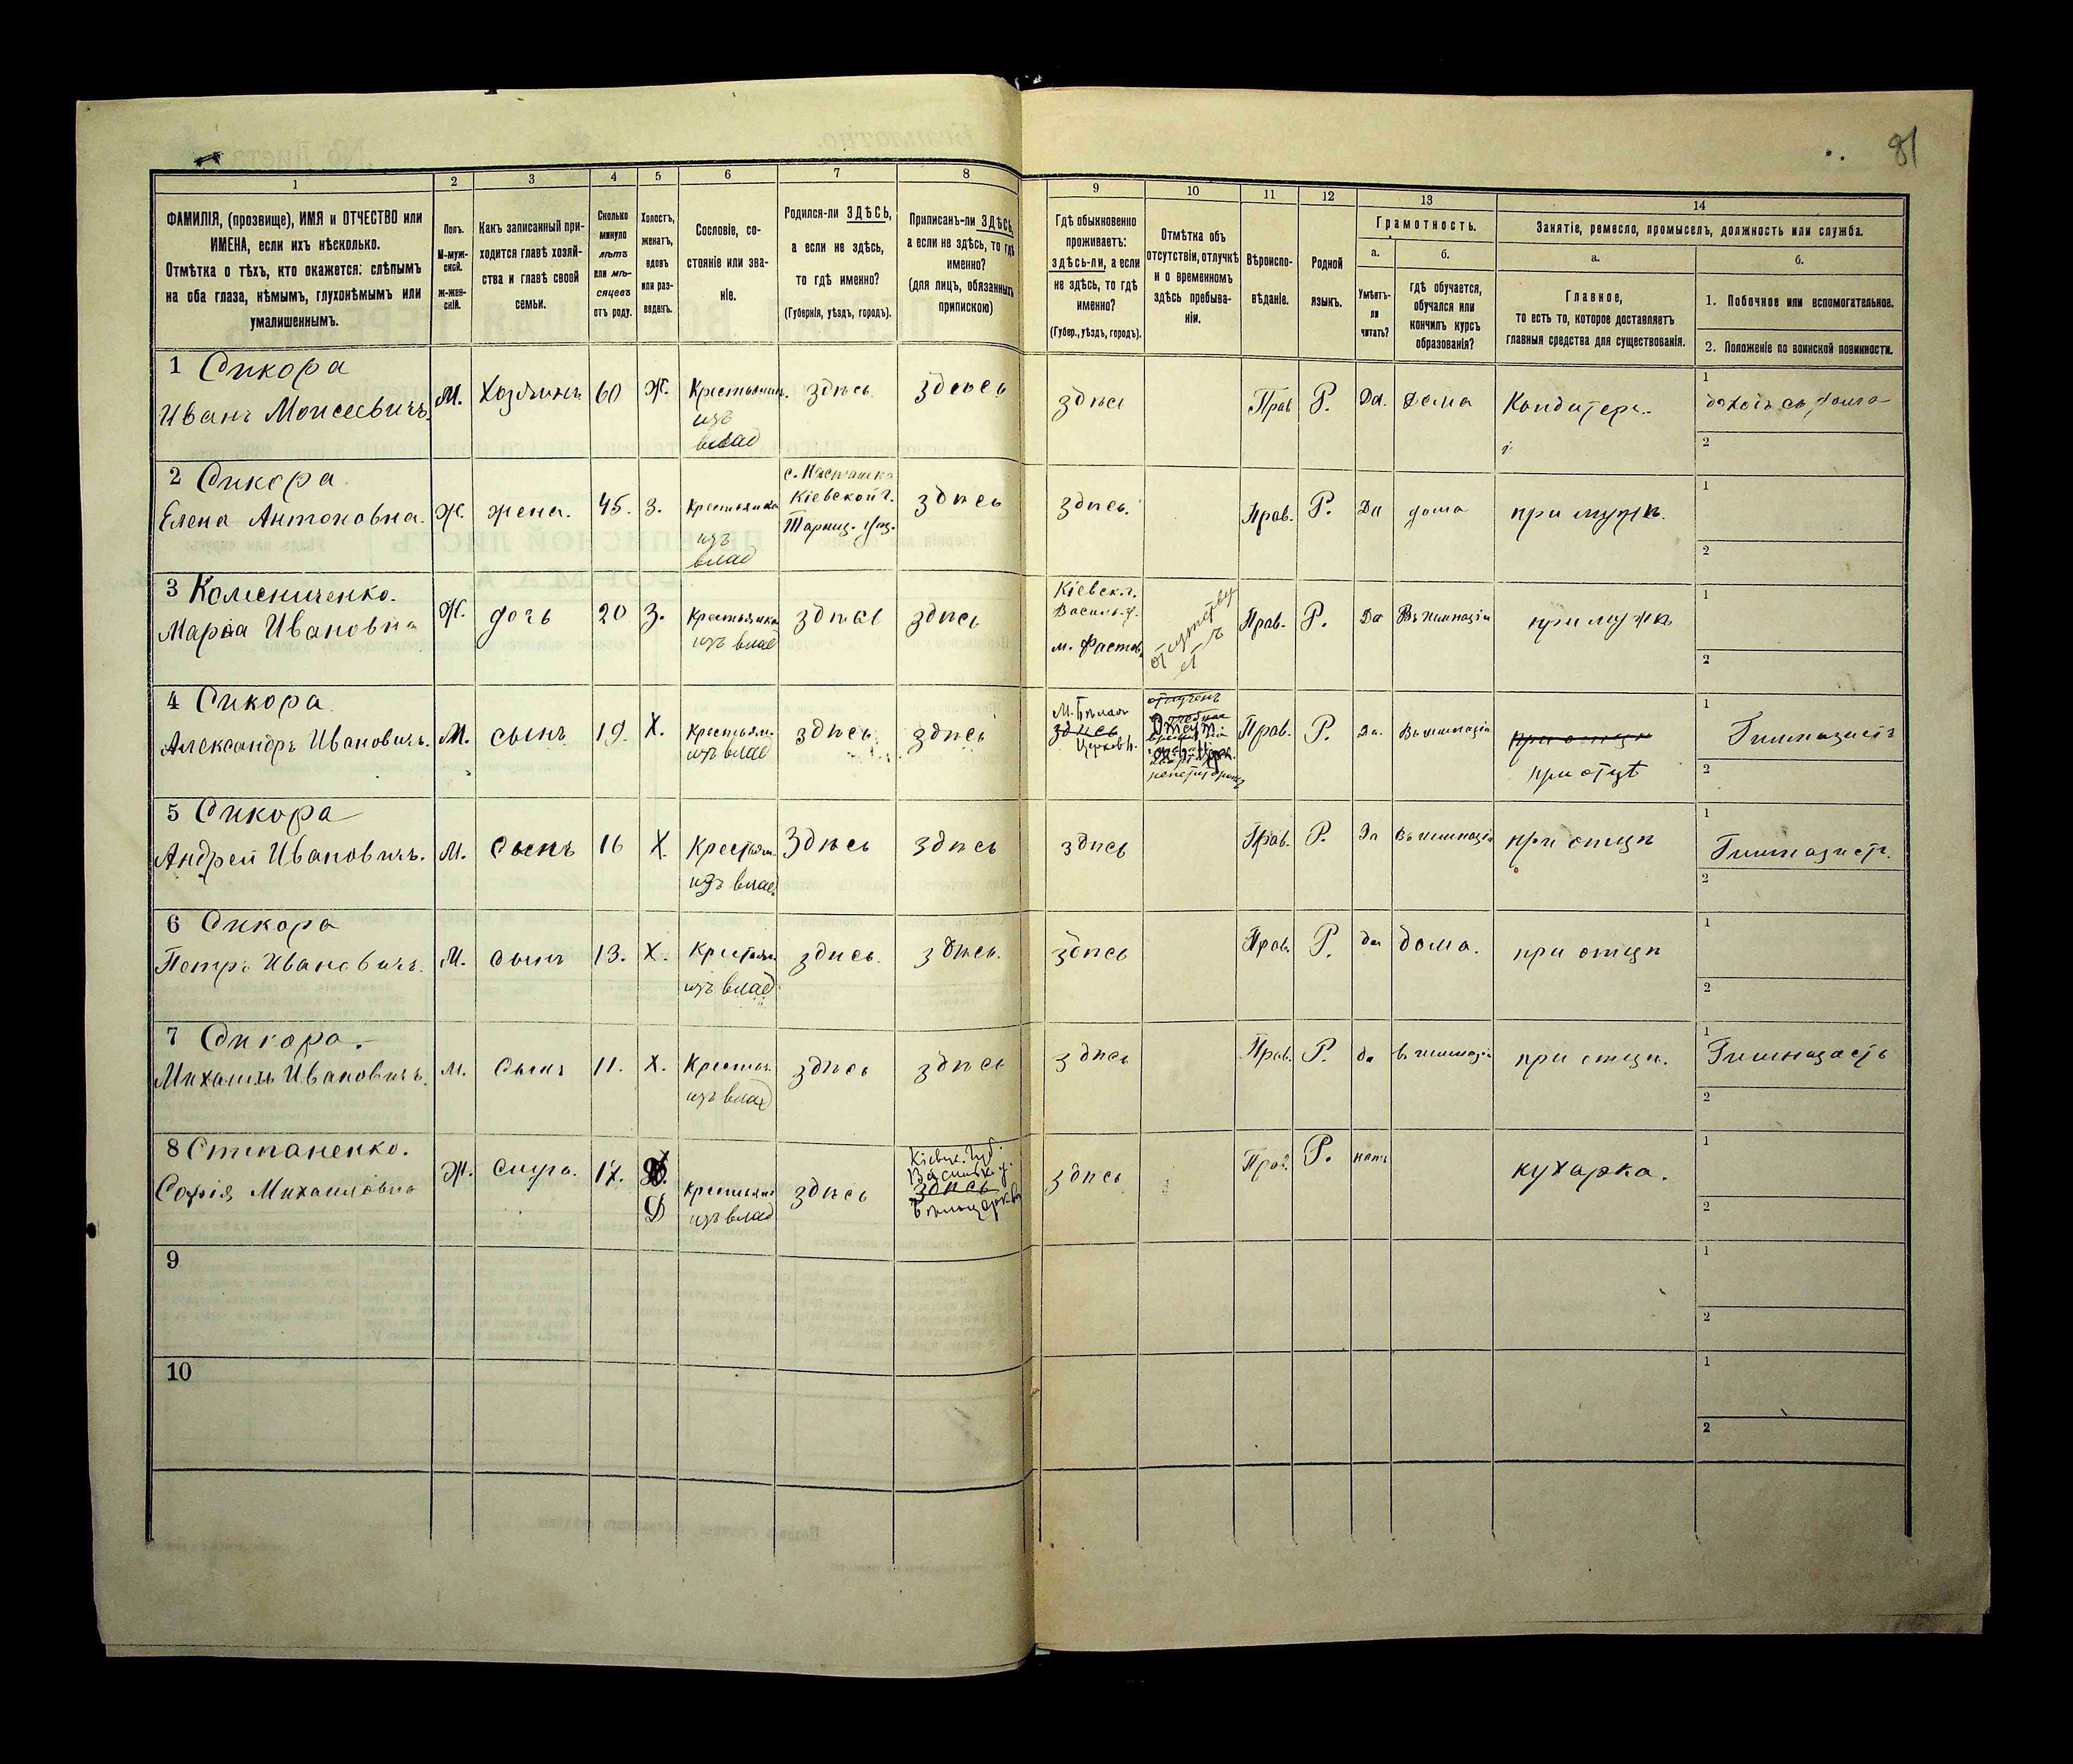 81
1
2
3
4
5
6
7
8
9
10
11
12
13
14
ФАМИЛІЯ, (прозвище), ИМЯ и ОТЧЕСТВО или
ИМЕНА, если ихъ нѣсколько.
Отмѣтка о тѣхъ, кто окажется: слѣпымъ
на оба глаза, нѣмымъ, глухонѣмымъ или
умалишеннымъ.
Полъ.
М-муж-
ской.
ж-жен-
скій.
Какъ записанный при-
ходится главѣ хозяй-
ства и главѣ своей
семьи.
Сколько
минуло
лѣтъ
или мѣ-
сяцевъ
отъ роду.
Холостъ,
женатъ,
вдовъ
или раз-
веденъ.
Сословіе, со-
стояніе или зва-
ніе.
Родился-ли ЗДѢСЬ,
а если не здѣсь,
то гдѣ именно?
(Губернія, уѣздъ, городъ).
Приписанъ-ли ЗДѢСЬ,
а если не здѣсь, то гдѣ
именно?
(для лицъ, обязанныхъ
припискою)
Гдѣ обыкновенно
проживаетъ:
здѣсь-ли, а если
не здѣсь, то гдѣ
именно?
(Губер., уѣздъ, городъ).
Отмѣтка объ
отсутствіи, отлучкѣ
и о временномъ
здѣсь пребыва-
ніи.
Вѣроиспо-
вѣданіе.
Родной
языкъ.
Грамотность.
а.
Умѣетъ-
ли
читать?
б.
гдѣ обучается,
обучался или
кончилъ курсъ
образованія?
Занятіе, ремесло, промыселъ, должность или служба.
а.
Главное,
то есть то, которое доставляетъ
главныя средства для существованія.
б.
1. Побочное или вспомогательное.
2. Положеніе по воинской повинности.
1 Сикора
Иванъ Моисеевичъ.
М.
Хозяинъ
60
Ж.
Крестьянинъ.
изъ
влад
здѣсь
здѣсь
здѣсь
Прав
Р.
Да.
Дома
Кондитеръ.
1
доходъ съ дома
2
2 Сикора
Елена Антоновна.
Ж.
жена.
45.
З.
Крестьянка
изъ
влад
с. Насташка
Кіевской г.
Таращ. уѣз.
здѣсь
здѣсь.
Прав.
Р.
Да
дома
при мужѣ.
1
2
3 Колесниченко.
Марія Ивановна
Ж.
дочь
20
З.
Крестьянка
изъ влад
здѣсь
здѣсь
Кіевск. г.
Васильк. у.
м. Фастовъ
отсутству
етъ
Прав.
Р.
Да
Въ гимназіи
при мужѣ
1
2
4 Сикора
Александръ Ивановичъ.
М.
сынъ
19.
Х.
Крестьян.
изъ влад
здѣсь.
здѣсь
М. Бѣлая
здѣсь
Церковь.
Прав.
Р.
Да.
Въ гимназіи
при отцѣ
при отцѣ
1
Гимназистъ
2
5 Сикора
Андрей Ивановичъ.
М.
Сынъ
16
Х.
Крестьян.
изъ влад.
Здѣсь
здѣсь
здѣсь
Прав.
Р.
Да
Въ гимназіи
при отцѣ
1
Гимназистъ.
2
6 Сикора
Петръ Ивановичъ.
М.
сынъ
13.
Х.
Крестьян.
изъ влад
здѣсь.
здѣсь.
здѣсь
Прав.
Р.
да
дома.
при отцѣ
1
2
7 Сикора.
Михаилъ Ивановичъ.
М.
Сынъ
11.
Х.
Крестьян.
изъ влад
здѣсь
здѣсь
здѣсь
Прав.
Р.
да
въ гимназіи
при отцѣ.
1
Гимназистъ
2
8 Степаненко.
Софія Михаиловна
Ж.
Слуга.
17.
Д
Крестьян
изъ влад
здѣсь
Кіевск. Губ.
Васильк. у.
здѣсь
Бѣлоцерков
здѣсь
Прав.
Р.
нѣтъ
кухарка.
1
2
9
1
2
10
1
2